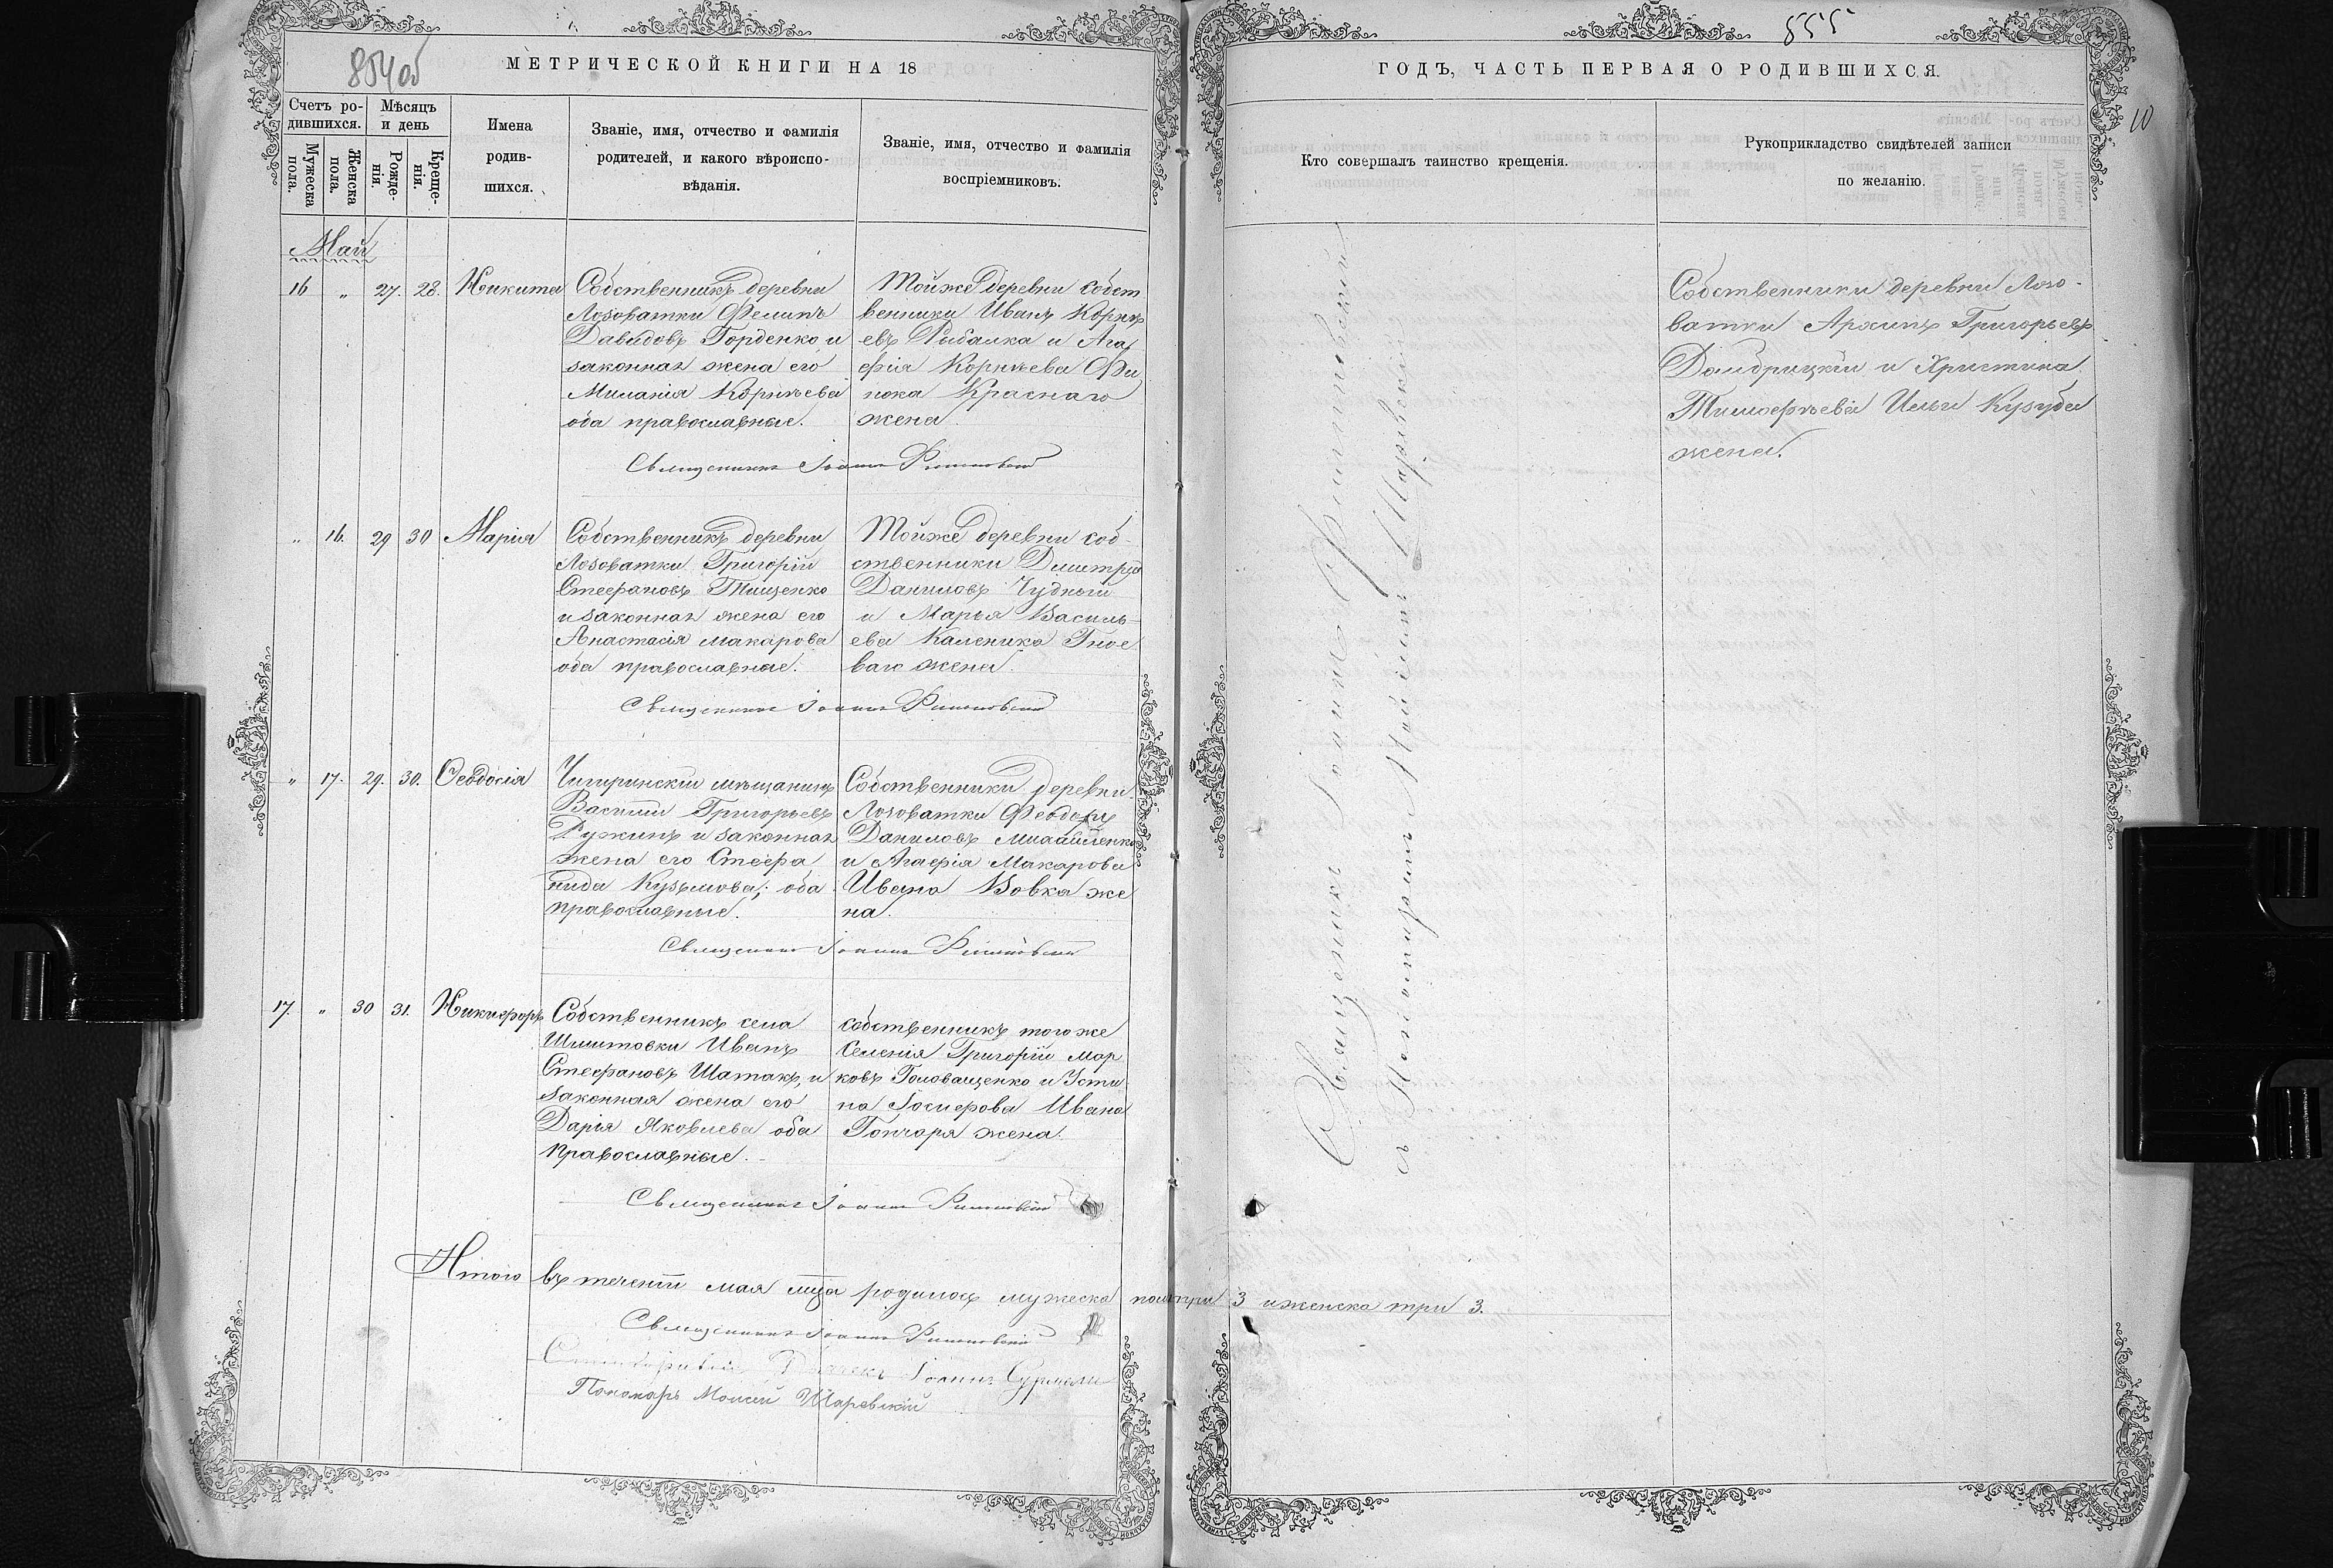 854об
МЕТРИЧЕСКОЙ КНИГИ НА 18
Счетъ ро-
дившихся.
Мѣсяцъ
и день
Мужеска
пола.
Женска
пола.
Рожде-
нія.
Креще-
нія.
Имена
родив-
шихся.
Званіе, имя, отчество и фамилія
родителей, и какого вѣроиспо-
вѣданія.
Званіе, имя, отчество и фамилія
воспріемниковъ.
Май
16 „ 27. 28. Никита
Собственникъ деревни
Лозоватки Филипъ
Давидовъ Горденко и
законная жена его
Миланія Корнѣева
оба православные.
Тойже деревни собст
венники Иванъ Корнѣ
евъ Рыбалка и Ага
фія Корнѣева
Краснаго
жена
Священникъ Іоаннъ
„ 16. 29 30 Марія
Собственникъ деревни
Лозоватки Григорій
Стефановъ Тищенко
и законная жена его
Анастасія Макарова
оба православные.
Тойже деревни соб-
ственники Димитрій
Даниловъ Чудный
и Марья Василь-
ева Каленика Гное
ваго жена.
Священникъ Іоаннъ
„ 17. 29. 30. Феодосія
Чигиринскій мѣщанинъ
Василій Григорьевъ
Ружинъ и законная
жена его Стефа
нида Кузьмова; оба
православные.
Собственники деревни
Лозоватки Феодоръ
Даниловъ Михайленко
и Агафія Макарова
Ивана Вовка же
на.
Священникъ Іоаннъ
17. „ 30 31. Никифоръ
Собственникъ села
Иванъ
Стефановъ Шатакъ, и
законная жена его
Дарія Яковлева оба
православные.
собственникъ того же
селенія Григорій Мар
ковъ Головащенко и Усти
на Іосифова Ивана
Гончаря жена.
Священникъ Іоаннъ
Итого въ теченіи мая мца родилось мужеска пола три 3 и женска три 3.
Священникъ Іоаннъ
Дьячекъ Іоаннъ
Пономарь Моисей Шаревскій
555
10
ГОДЪ, ЧАСТЬ ПЕРВАЯ О РОДИВШИХСЯ.
Кто совершалъ таинство крещенія.
Рукоприкладство свидѣтелей записи
по желанію.
Священникъ Іоаннъ
съ Пономаремъ Моисеемъ Шаревскимъ
Собственники деревни Лозо-
ватки Архипъ Григорьевъ
Домбрицкій и Христина
Тимофѣева Ильи Кузуба
жена.